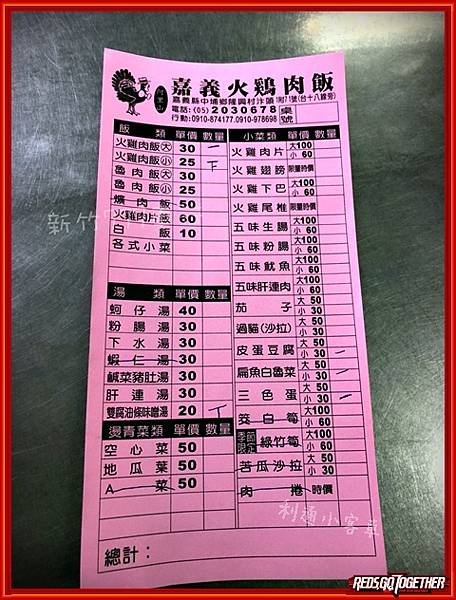 嘉義火鷄肉飯
阿里山
嘉義縣中埔鄉隆興村汴頭
電話:(05)2030678
行動:0910-874177.0910-978698
桌號
飯 類 單價 數量
火雞肉飯大 30 一
火雞肉飯小 25 下
魯肉飯大 30
魯肉飯小 25
爌肉飯 50
火雞肉片飯 60
白飯 10
各式小菜
湯 類 單價 數量
蚵仔湯 40
粉腸湯 30
下水湯 30
蝦仁湯 30
鹹菜豬肚湯 30
肝連湯 30
雙腐油條味噌湯 20 丅
燙青菜類 單價 數量
空心菜 50
地瓜葉 50
A菜 50
總計:
小菜類 單價 數量
火雞肉片 大100 小60
火雞翅膀 限量時價
火雞下巴 大100 小60
火雞尾椎 限量時價
五味生腸 大100 小60
五味粉腸 大100 小60
五味魷魚 大100 小60
五味肝連肉 大100 小60
茄子 大50 小30
過貓(沙拉) 大100 小60
皮蛋豆腐 大50 小30 一
扁魚白魯菜 大50 小30 一
三色蛋 大50 小30 一
筊白筍 大100 小60
季節限定 綠竹筍 大100 小60
苦瓜沙拉 大50 小30
肉捲 時價
新竹
利通小客車
REDSGOTOGETHER